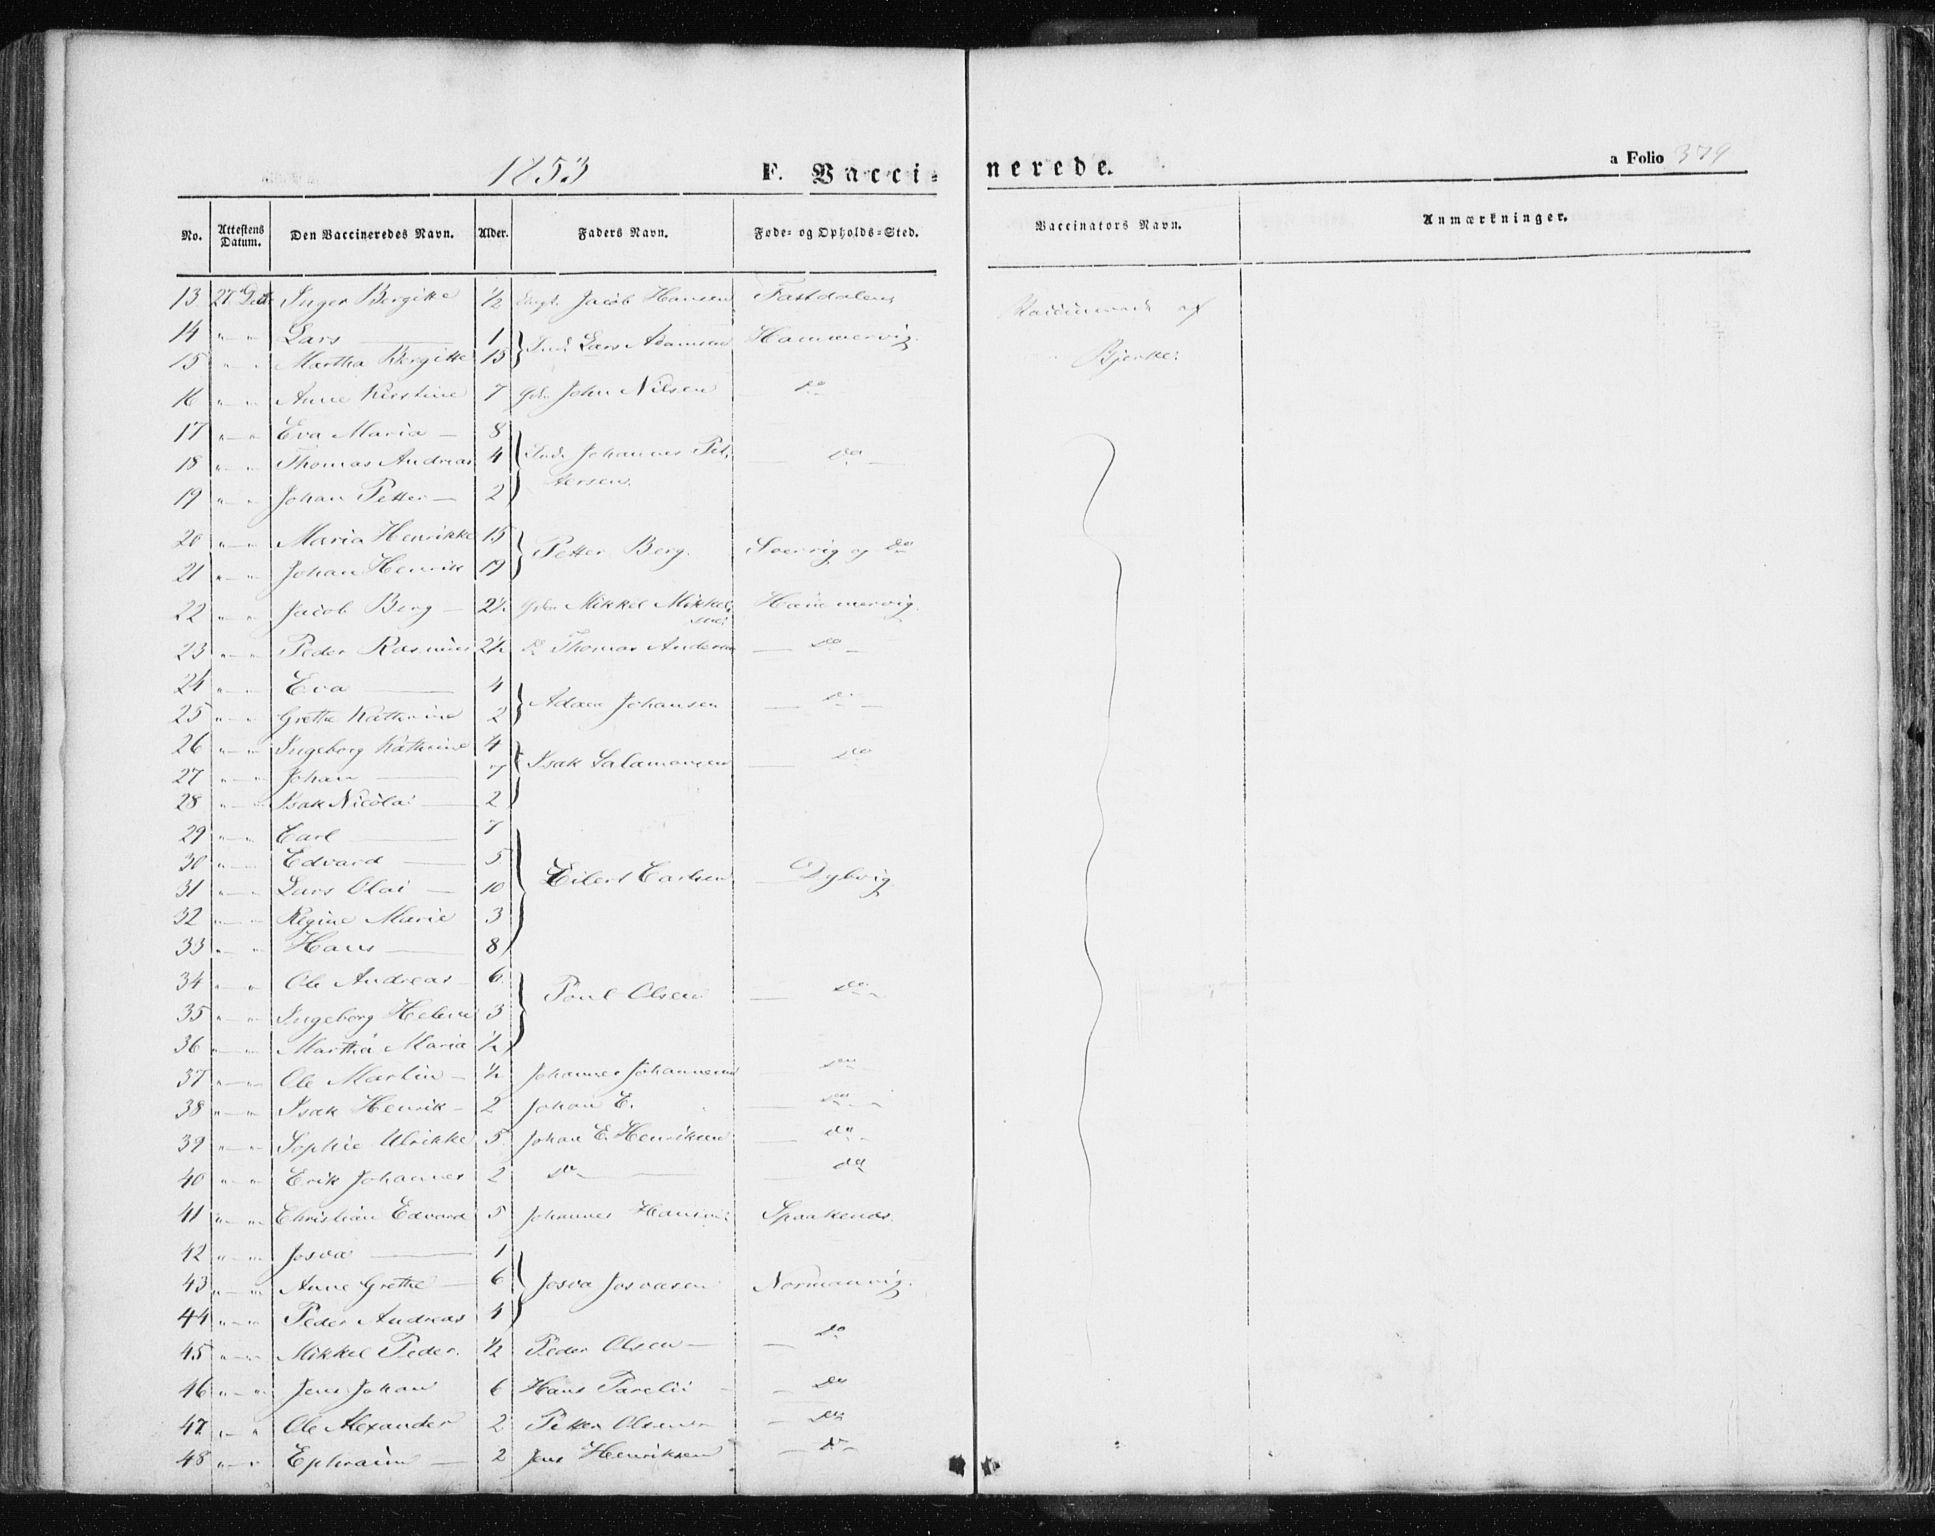 1853 F. Vaccinerede. a Folio 379
No. Attestens Datum. Den Vaccineredes Navn. Alder. Faders Navn. Føde- og Opholds-Sted. Vaccinators Navn. Anmærkninger.
13 27 Dec Inger Bergitte ½ Jacob Hansen Fastdalen Vaccinerede af
14 " — " Lars — 1 Ind: Lars Adamsen Hammervig.
15 " — " Martha Bergitte 15 Bjerke:
16 " — " Anne Kirstine 7 Gdr. John Nilsen do
17 " — " Eva Maria — 8
18 " — " Thomas Andreas 4 Ind: Johannes Pet- — do —
19 " — " Johan Petter — 2 tersen
20 " — " Maria Henrikke 15 Petter Berg. og do
21 " — " Johan Henrik 19
22 " — " Jacob Berg — 2½ Gdr. Mikkel Mikkel- Hammervig.
sen
23 " — " Peder Rasmus 2½ do Thomas Andersen — do —
24 " — " Eva — 4 Adam Johansen — do —
25 " — " Grethe Kathrine 2
26 " — " Ingeborg Kathrine 4 Isak Salamonsen — do
27 " — " Johan — 7
28 " — " Isak Nicolai — 2
29 " — " Carl — 7
30 " — " Edvard — 5
31 " — " Lars Olai — 10 Eilert Carlsen — Dybvig
32 " — " Regine Marie 3
33 " — " Hans — 8
34 " — " Ole Andreas — 6 Poul Olsen — do —
35 " — " Ingeborg Helene 3
36 " — " Martha Maria ½
37 " — " Ole Martin — ½ Johannes Johannesen — do
38 " — " Isak Henrik — 2 Johan E. — do —
39 " — " Sophie Ulrikke 5 Johan E. Henriksen — do
40 " — " Erik Johannes 2 do — — do
41 " — " Christian Edvard 5 Johannes Hansen Spaakenes
42 " — " Josva — 1
43 " — " Anne Grethe — 6 Josva Josvasen Normanvig.
44 " — " Peder Andreas 4
45 " — " Mikkel Peder. ½ Peder Olsen — — do
46 " — " Jens Johan 6 Hans Parelii — do
47 " — " Ole Alexander 2 Petter Olsen — do
48 " — " Ephraim — 2 Jens Henriksen — do —